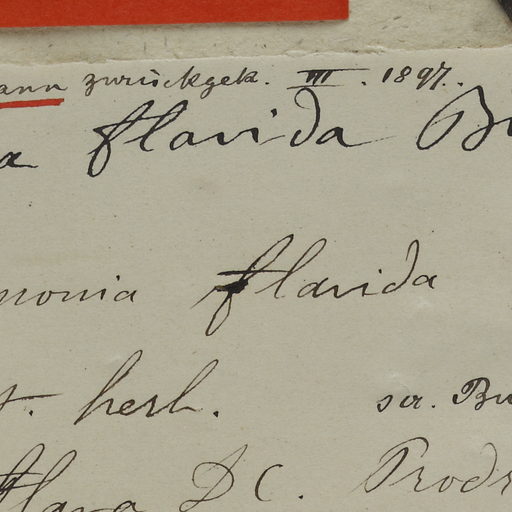 ann zurückgek. III. 1897.
a flavida Bu
nonia flavida
t. herb. scr. Bu
flava DC. Prodr